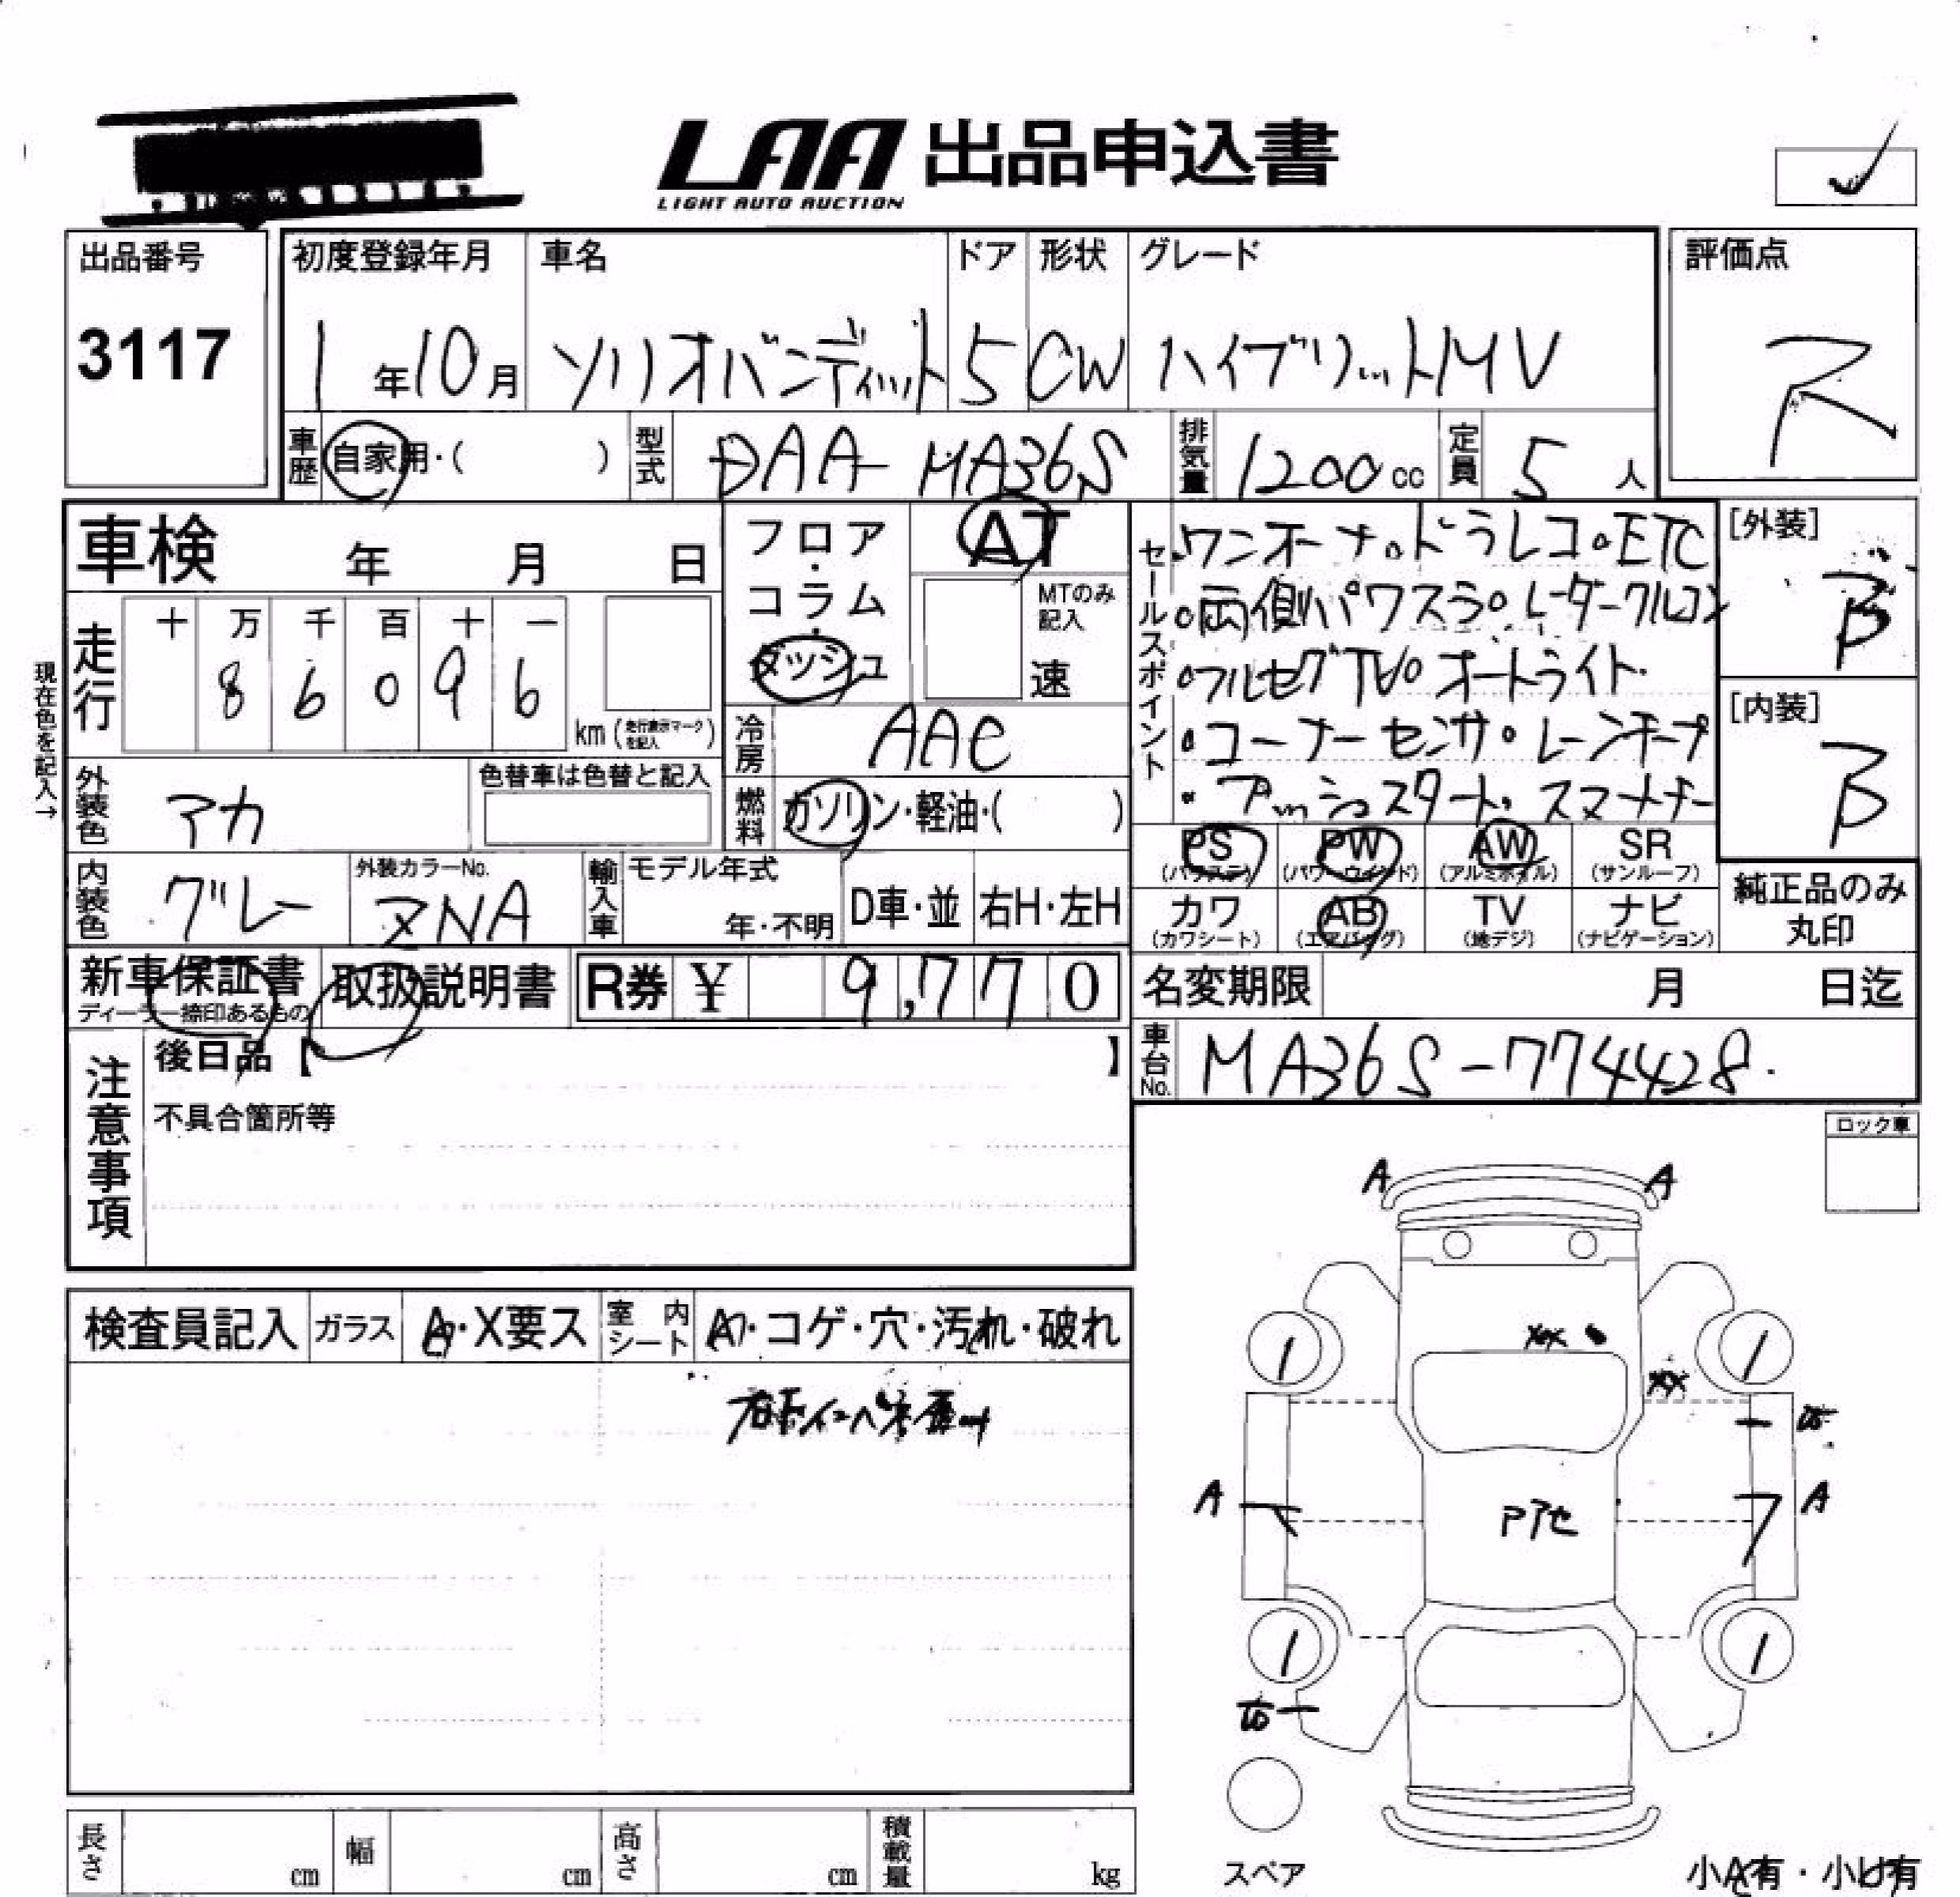 LAA 出品申込書
LIGHT AUTO AUCTION
出品番号
3117
初度登録年月 車名 ドア 形状 グレード
1年10月 ソリオバンディット 5 CW ハイブリットMV
評価点
R
車歴 自家用・( ) 型式 DAA-MA36S 排気量 1200cc 定員 5人
車検 年 月 日
フロア・コラム・ダッシュ
AT
MTのみ記入
速
セールスポイント
・ワンオーナ。ドラレコ。ETC
・両側パワスラ。レーダークルコン
・フルセグTV。オートライト.
・コーナーセンサ。レーンキープ
・プッシュスタート。スマートキー
[外装]
B
[内装]
B
走行 十 万 千 百 十 一
8 6 0 9 6
km (走行表示マークを記入)
現在色を記入→
冷房 AAC
燃料 ガソリン・軽油・( )
外装色 アカ
色替車は色替と記入
内装色 グレー
外装カラーNo.
ZNA
輸入車 モデル年式
年・不明
D車・並 右H・左H
PS (パワステ) PW (パワーウインド) AW (アルミホイル) SR (サンルーフ)
カワ (カワシート) AB (エアバッグ) TV (地デジ) ナビ (ナビゲーション)
純正品のみ
丸印
新車保証書
ディーラー捺印あるもの
取扱説明書
R券 ¥ 9,770
名変期限 月 日迄
車台No. MA36S-774428.
注意事項
後日品【 】
不具合箇所等
ロック車
検査員記入 ガラス A・X要ス 室内シート A・コゲ・穴・汚れ・破れ
A A
XX
XX
1 1
A A
1 1
長さ cm 幅 cm 高さ cm 積載量 kg
スペア
小A有・小U有